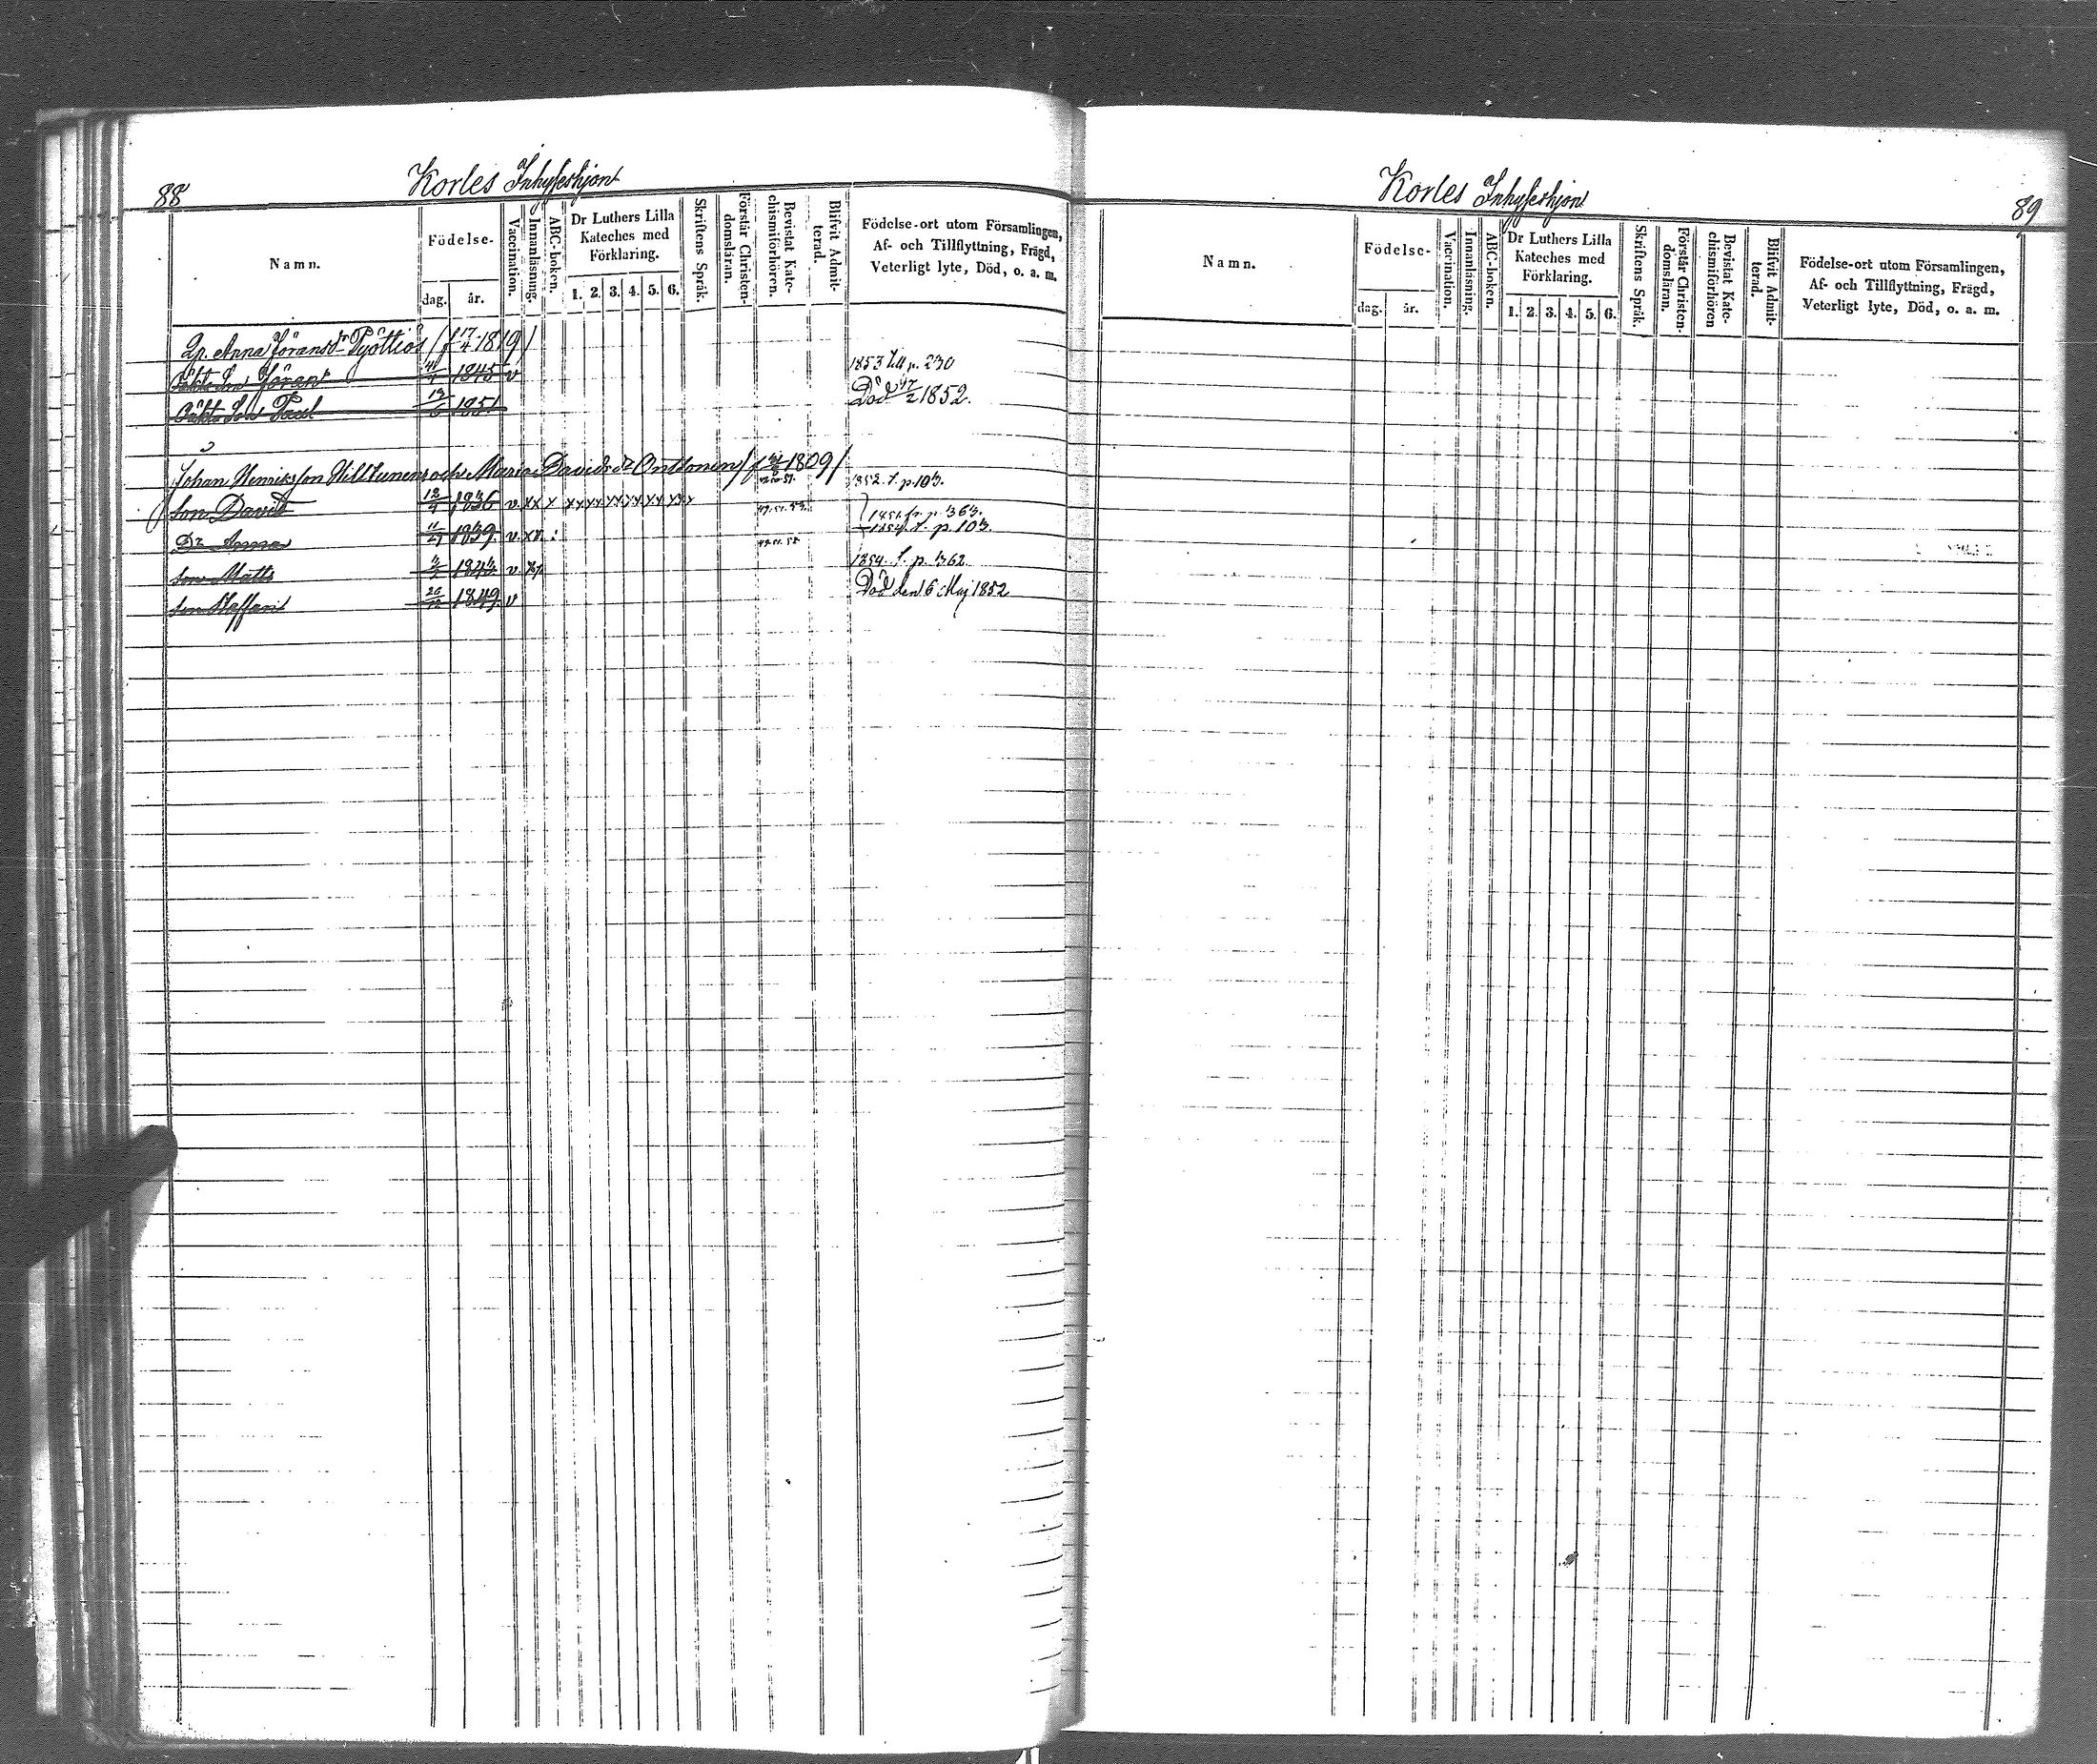 88
Korles Inhyseshjon
Namn.
Födelse-
dag. år.
Vaccination.
Innanläsning.
ABC-boken.
Dr Luthers Lilla
Kateches med
Förklaring.
1. 2. 3. 4. 5. 6.
Skriftens Språk.
Förstår Christen-
domsläran.
Bevistat Kate-
chismiförhören.
Blifvit Admit-
terad.
Födelse-ort utom Församlingen,
Af- och Tillflyttning, Frägd,
Veterligt lyte, Död, o. a. m.
Qp. Anna Göransdr Pyöttiös (f 17/4 1819)
Oäkta Son Göran 1845 v 1853 till p. 230
Oäkta Son Paul 13/6 1851 Död 1852.
Johan Henriksson Hilltunens och Maria Davids dr Onttonen (f 1809)
Son David 12/4 1836 v. xx x xx xx xx xx xx xx 1852. t. p. 103.
Dr Anna 1839. v. 1851. fr. p. 363.
1854. t. p. 103.
Son Matts 1843 v. 1854. t. p. 362.
Son Staffan 1849. v Död den 6 Maj 1852
Korles Inhyseshjon
89
Namn.
Födelse-
dag. år.
Vaccination.
Innanläsning.
ABC-boken.
Dr Luthers Lilla
Kateches med
Förklaring.
1. 2. 3. 4. 5. 6.
Skriftens Språk.
Förstår Christen-
domsläran.
Bevistat Kate-
chismiförhören
Blifvit Admit-
terad.
Födelse-ort utom Församlingen,
Af- och Tillflyttning, Frägd,
Veterligt lyte, Död, o. a. m.